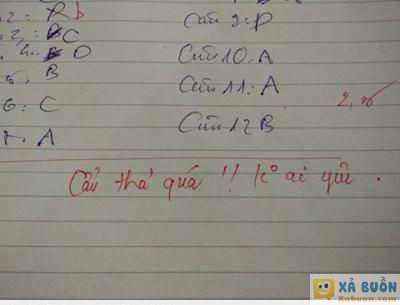 2: b
3: C
4. D
5. B
6: C
7. A
Câu 9: D
Câu 10: A
Câu 11: A
Câu 12 B
Cẩu thả quá !! k° ai yêu .
XẢ BUỒN
Xabuon.com